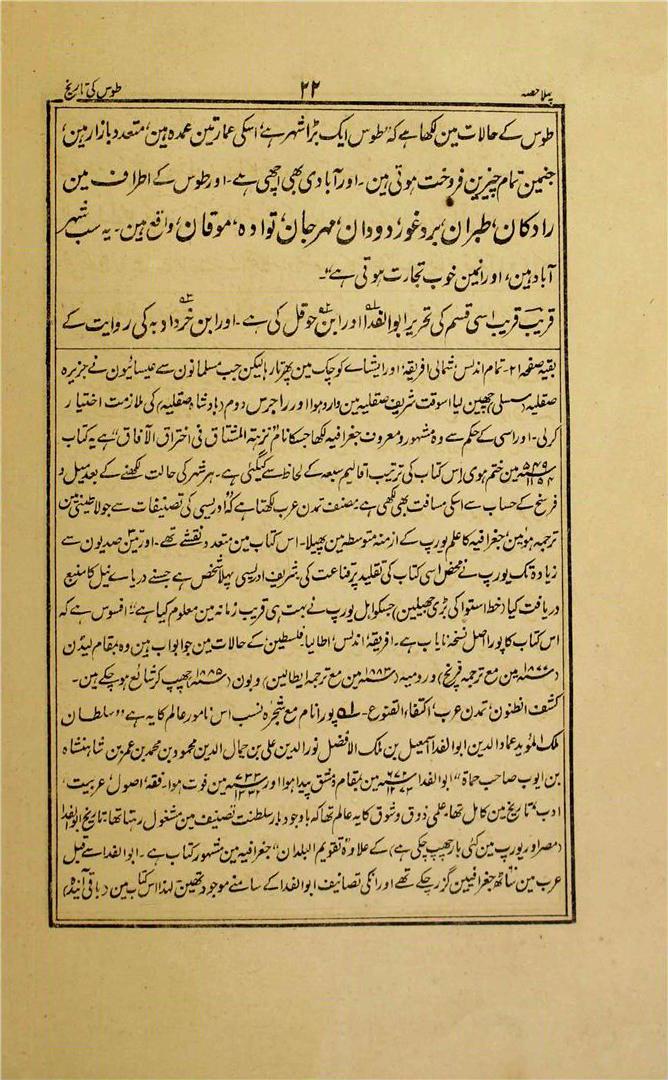 پہلا حصہ ۲۲ طوس کی تاریخ
طوس کے حالات مین لکھا ہے کہ "طوس ایک بڑا شہر ہے، اسکی عمارتین عمدہ ہین، متعدد بازار ہین،
جنمین تمام چیزین فروخت ہوتی ہین۔ اور آبادی بھی اچھی ہے۔ اور طوس کے اطراف مین
رادکان، طبران، بردغور، دودان، مہرجان، توادہ، موقان، واقع ہین۔ یہ سب شہر
آباد ہین، اور انمین خوب تجارت ہوتی ہے"۔
قریب قریب اسی قسم کی تحریر ابوالفدا اور ابن حوقل کی ہے۔ اور ابن خرداد بہ کی روایت کے
بقیہ صفحہ ۲۱۔ تمام اندلس، شمالی افریقہ، اور ایشیاے کوچک مین پھرتا رہا لیکن جب مسلمانون سے عیسائیون نے جزیرہ
صقلیہ (سسلی) چھین لیا اسوقت شریف صقلیہ مین وارد ہوا اور راجرس دوم (بادشاہ صقلیہ) کی ملازمت اختیار
کرلی۔ اور اسی کے حکم سے وہ مشہور و معروف جغرافیہ لکھا جسکا نام "نزہتہ المشتاق فی اختراق الآفاق" ہے یہ کتاب
مین ختم ہوی اس کتاب کی ترتیب اقالیم سبعہ کے لحاظ سے کیگئی ہے۔ ہر شہر کی حالت لکھنے کے بعد میل و
فرسخ کے حساب سے اسکی مسافت بھی لکھی ہے، مصنف تمدن عرب لکھتا ہے کہ "ادریسی کی تصنیفات سے جو لاطینی مین
ترجمہ ہوئین، جغرافیہ کا علم یورپ کے ازمنہ متوسط مین پھیلا۔ اس کتاب مین متعدد نقشے تھے۔ اور تین صدیون سے
زیادہ تک یورپ نے محض اسی کتاب کی تقلید پر قناعت کی، شریف ادریسی پہلا شخص ہے جسنے دریاے نیل کا منبع
دریافت کیا (خط استوا کی بڑی جھیلین) جسکو اہل یورپ نے بہت ہی قریب زمانہ مین معلوم کیا ہے" افسوس ہے کہ
اس کتاب کا پورا اصل نسخہ نایاب ہے۔ افریقہ، اندلس، اطالیا، فلسطین کے حالات مین جو ابواب ہین وہ بمقام لیڈن
مین مع ترجمہ فرنچ) و رومیہ (۱۸۸۳ مین مع ترجمہ ایطالین) و بون (۱۸۸۵) چھپ کر شائع ہو چکے ہین۔
کشف الظنون، تمدن عرب، اکتفاء القنوع۔ ۵۱ پورا نام مع شجرہ نسب اس نامور عالم کا یہ ہے "سلطان
ملک المؤید عماد الدین ابوالفدا اسمٰعیل بن ملک الافضل نور الدین علی بن جمال الدین محمود بن محمد بن عمر بن شاہنشاہ
بن ایوب صاحب حماۃ" ابوالفدا ۶۷۲ ۱۲۷۳ مین بمقام دمشق پیدا ہوا اور ۷۳۲ مین فوت ہوا۔ فقہ، اصول، عربیت،
ادب، تاریخ مین کامل تھا، علمی ذوق و شوق کا یہ عالم تھا کہ باوجود بار سلطنت تصنیف مین مشغول رہتا تھا، تاریخ ابوالفدا
(مصر اور یورپ مین کئی بار چھپ چکی ہے) کے علاوہ "تقویم البلدان" جغرافیہ مین مشہور کتاب ہے۔ ابوالفدا سے قبل
عرب مین ساٹھ جغرافیین گزر چکے تھے اور انکی تصانیف ابوالفدا کے سامنے موجود تھین لہذا اس کتاب مین (باقی آئندہ)